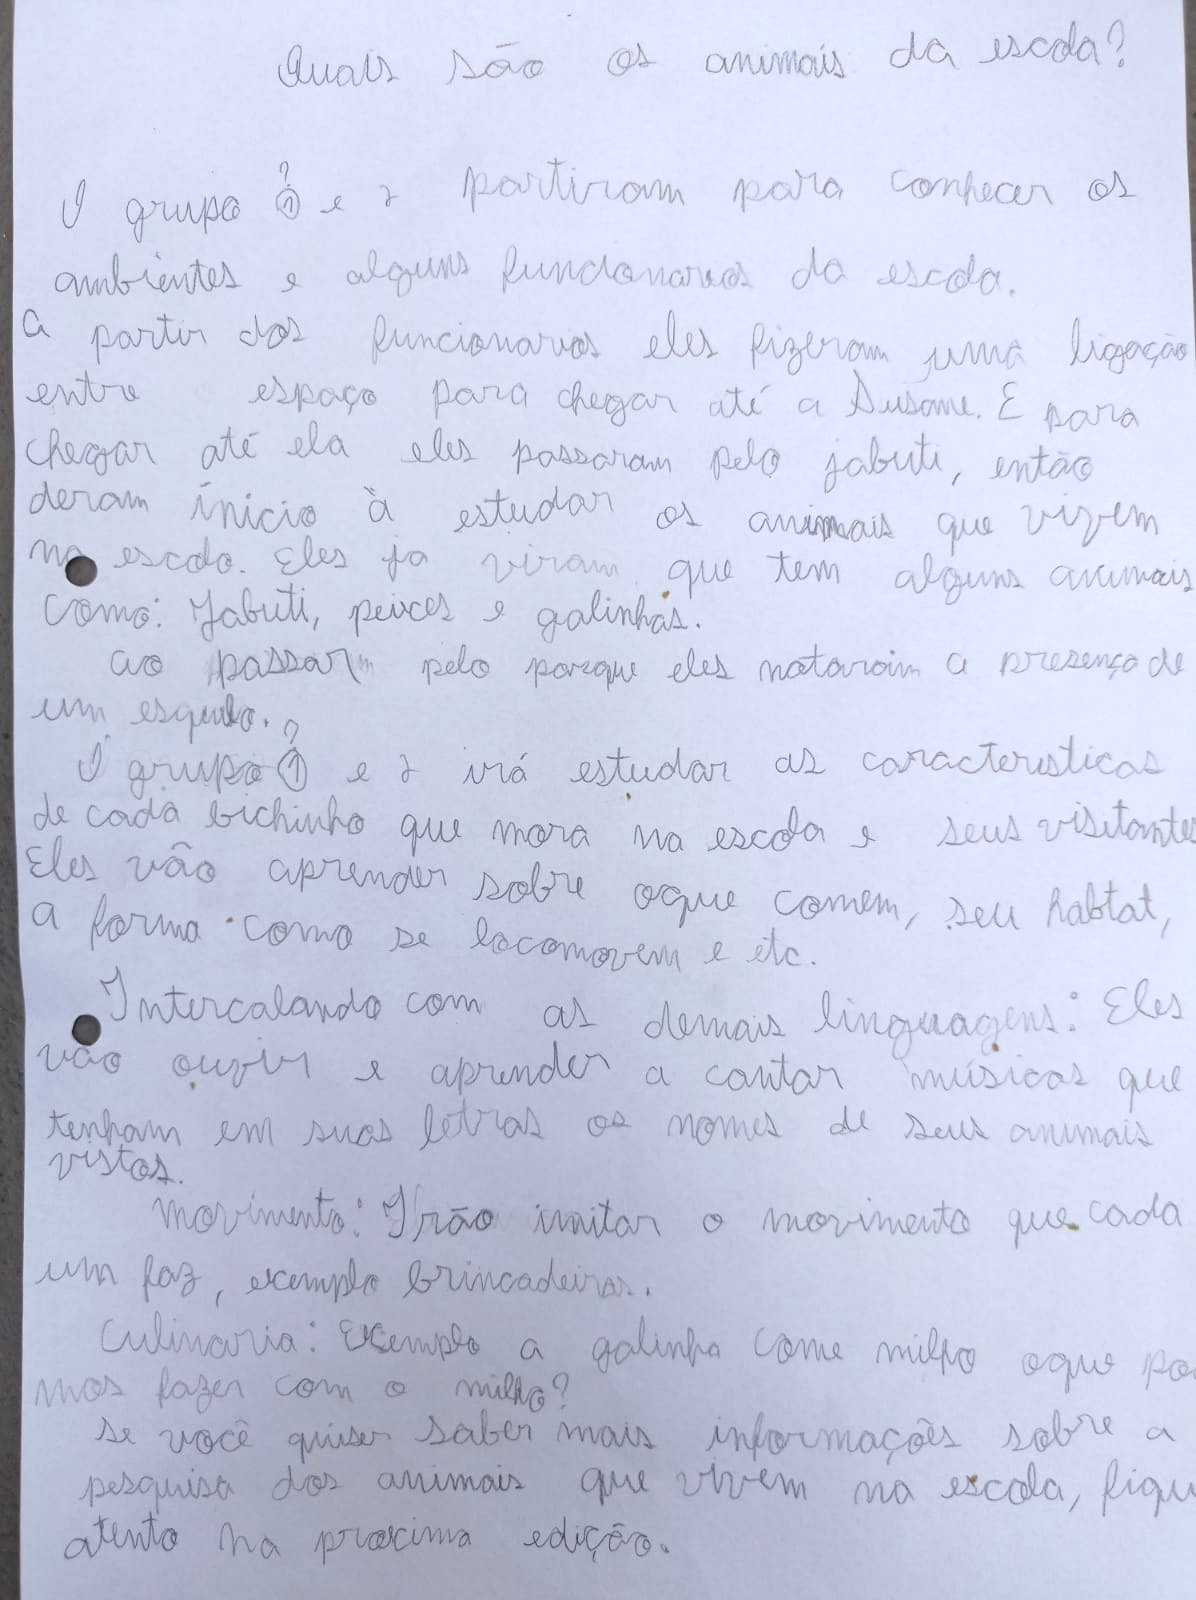 Quais são os animais da escola?
?
O grupo 1 e 2 partiram para conhecer os
ambientes e alguns funcionarios da escola.
A partir dos funcionarios eles fizeram uma ligação
entre espaço para chegar até a Susane. E para
chegar até ela eles passaram pelo jabuti, então
deram ínicio à estudar os animais que vivem
na escola. Eles ja viram que tem alguns animais
como: Jabuti, peixes e galinhas.
ao passarm pelo parque eles notaram a presença de
um esquilo.
?
O grupo 1 e 2 irá estudar as caracteristicas
de cada bichinho que mora na escola e seus visitantes
Eles vão aprender sobre oque comem, seu habtat,
a forma como se locomovem e etc.
Intercalando com as demais linguagens: Eles
vão ouvir e aprender a cantar músicas que
tenham em suas letras os nomes de seus animais
vistos.
Movimento: Irão imitar o movimento que cada
um faz, exemplo brincadeiras.
Culinaria: Exemplo a galinha come milho oque po
mos fazer com o milho?
Se você quiser saber mais informações sobre a
pesquisa dos animais que vivem na escola, fiqu
atento na proxima edição.